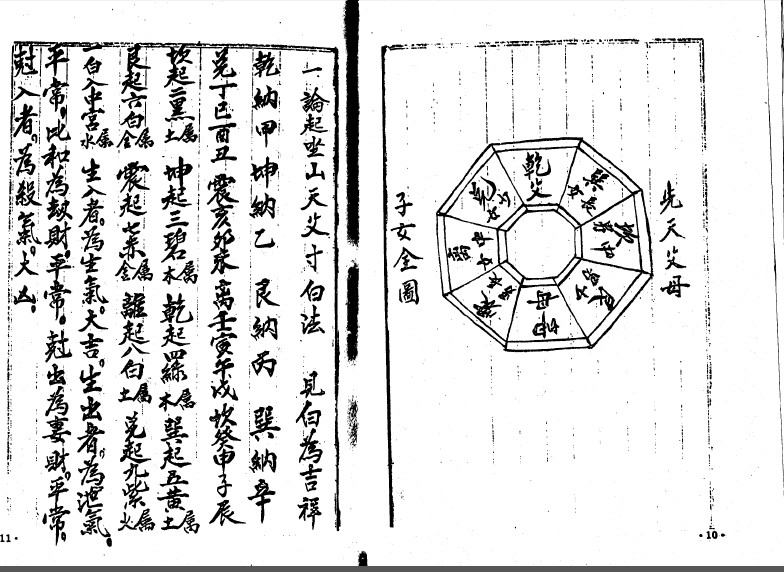 先天父母
子女全圖
乾父
坤母
·10·
一論起坐山天父寸白法　見白為吉祥
乾納甲坤納乙　艮納丙　巽納辛
兌丁巳酉丑　震亥卯未　离壬寅午戌　坎癸申子辰
坎起二黑屬土　坤起三碧屬木　乾起四綠屬木　巽起五黃屬土
艮起六白屬金　震起七赤屬金　離起八白屬土　兌起九紫屬火
一白入中宮屬水　生入者。為生氣。大吉。生出者。為泄氣。
平常。比和為刼財。平常。尅出為妻財。平常。
尅入者。為殺氣。大凶。
11·